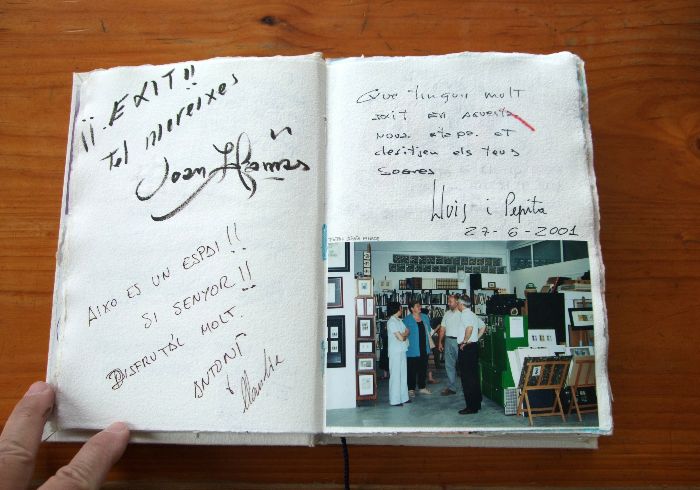 ¡¡·EXIT!!
Tel mereixes
Joan
AIXO ES UN ESPAI!!
SI SENYOR!!
DISFRUTA'L MOLT.
ANTONI
Que tinguis molt
exit en aquesta
nova etapa et
desitjen els teus
sogres
Lluis i Pepita
27-6-2001